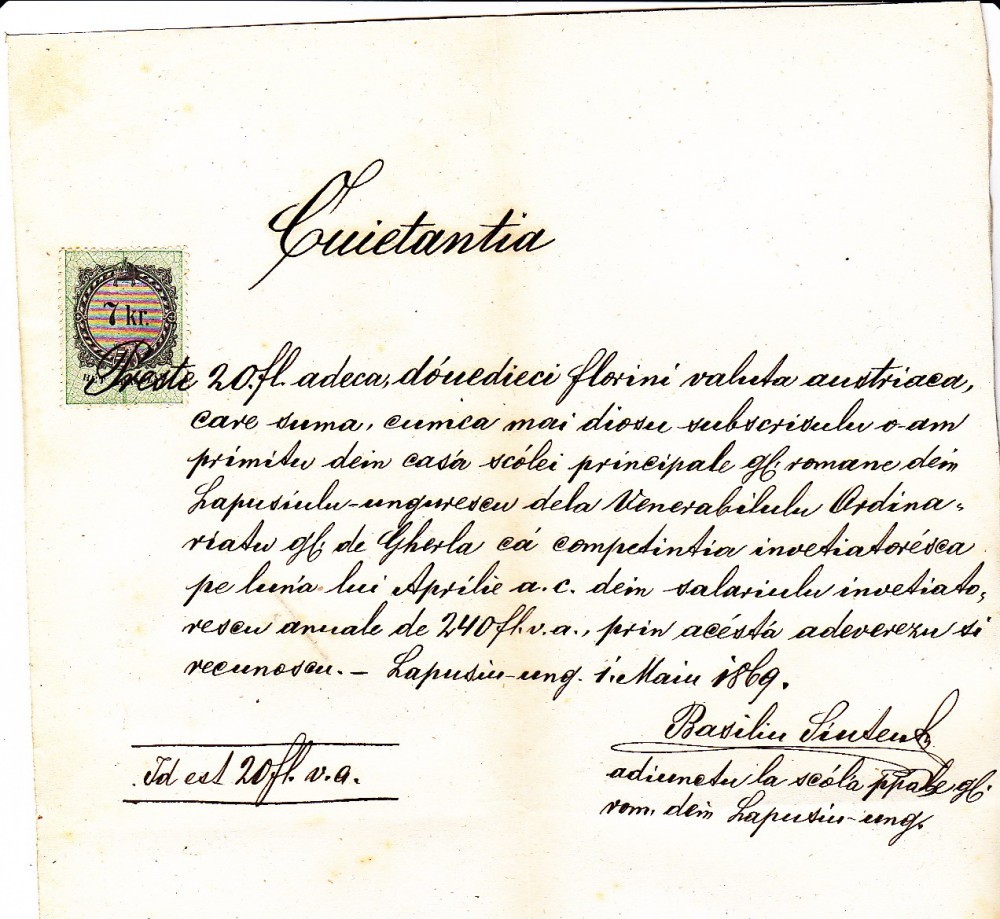 Cuietantia
7 kr.
Preste 20.fl. adeca, dóuedieci florini valuta austriaca,
care suma, cumca mai diosu subscrisulu o-am
primitu dein casá scólei principale gℓ. romane dein
Lapusiulu-ungurescu dela Venerabilulu Ordina=
riatu gℓ. de Gherla cá competintia invetiatorésca
pe lun'a lui Aprilie a. c. dein salariulu invetiato=
rescu anuale de 240 fl. v. a., prin acéstá adeverezu si
recunoscu. – Lapusiu-ung. 1. Maiu 1869.
Basiliu
Id est 20 fl. v. a.
adiunctu la scólá ppale gℓ.
rom. dein Lapusiu-ung.